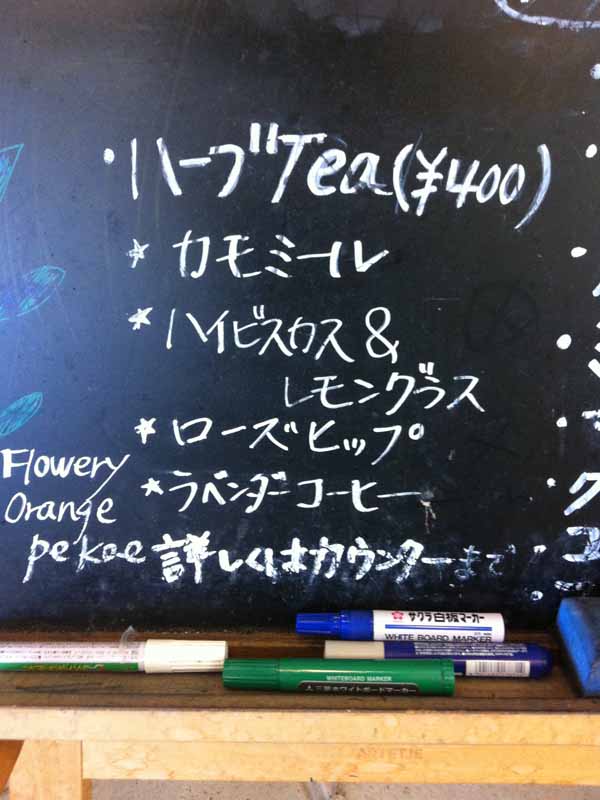 ・ハーブTea(¥400)
★カモミール
★ハイビスカス&
レモングラス
★ローズヒップ
★ラベンダーコーヒー
Flowery
Orange
pekoe
詳しくはカウンターまで
サクラ白板マーカー
WHITE BOARD MARKER
WHITEBOARD MARKER
三菱ホワイトボードマーカー